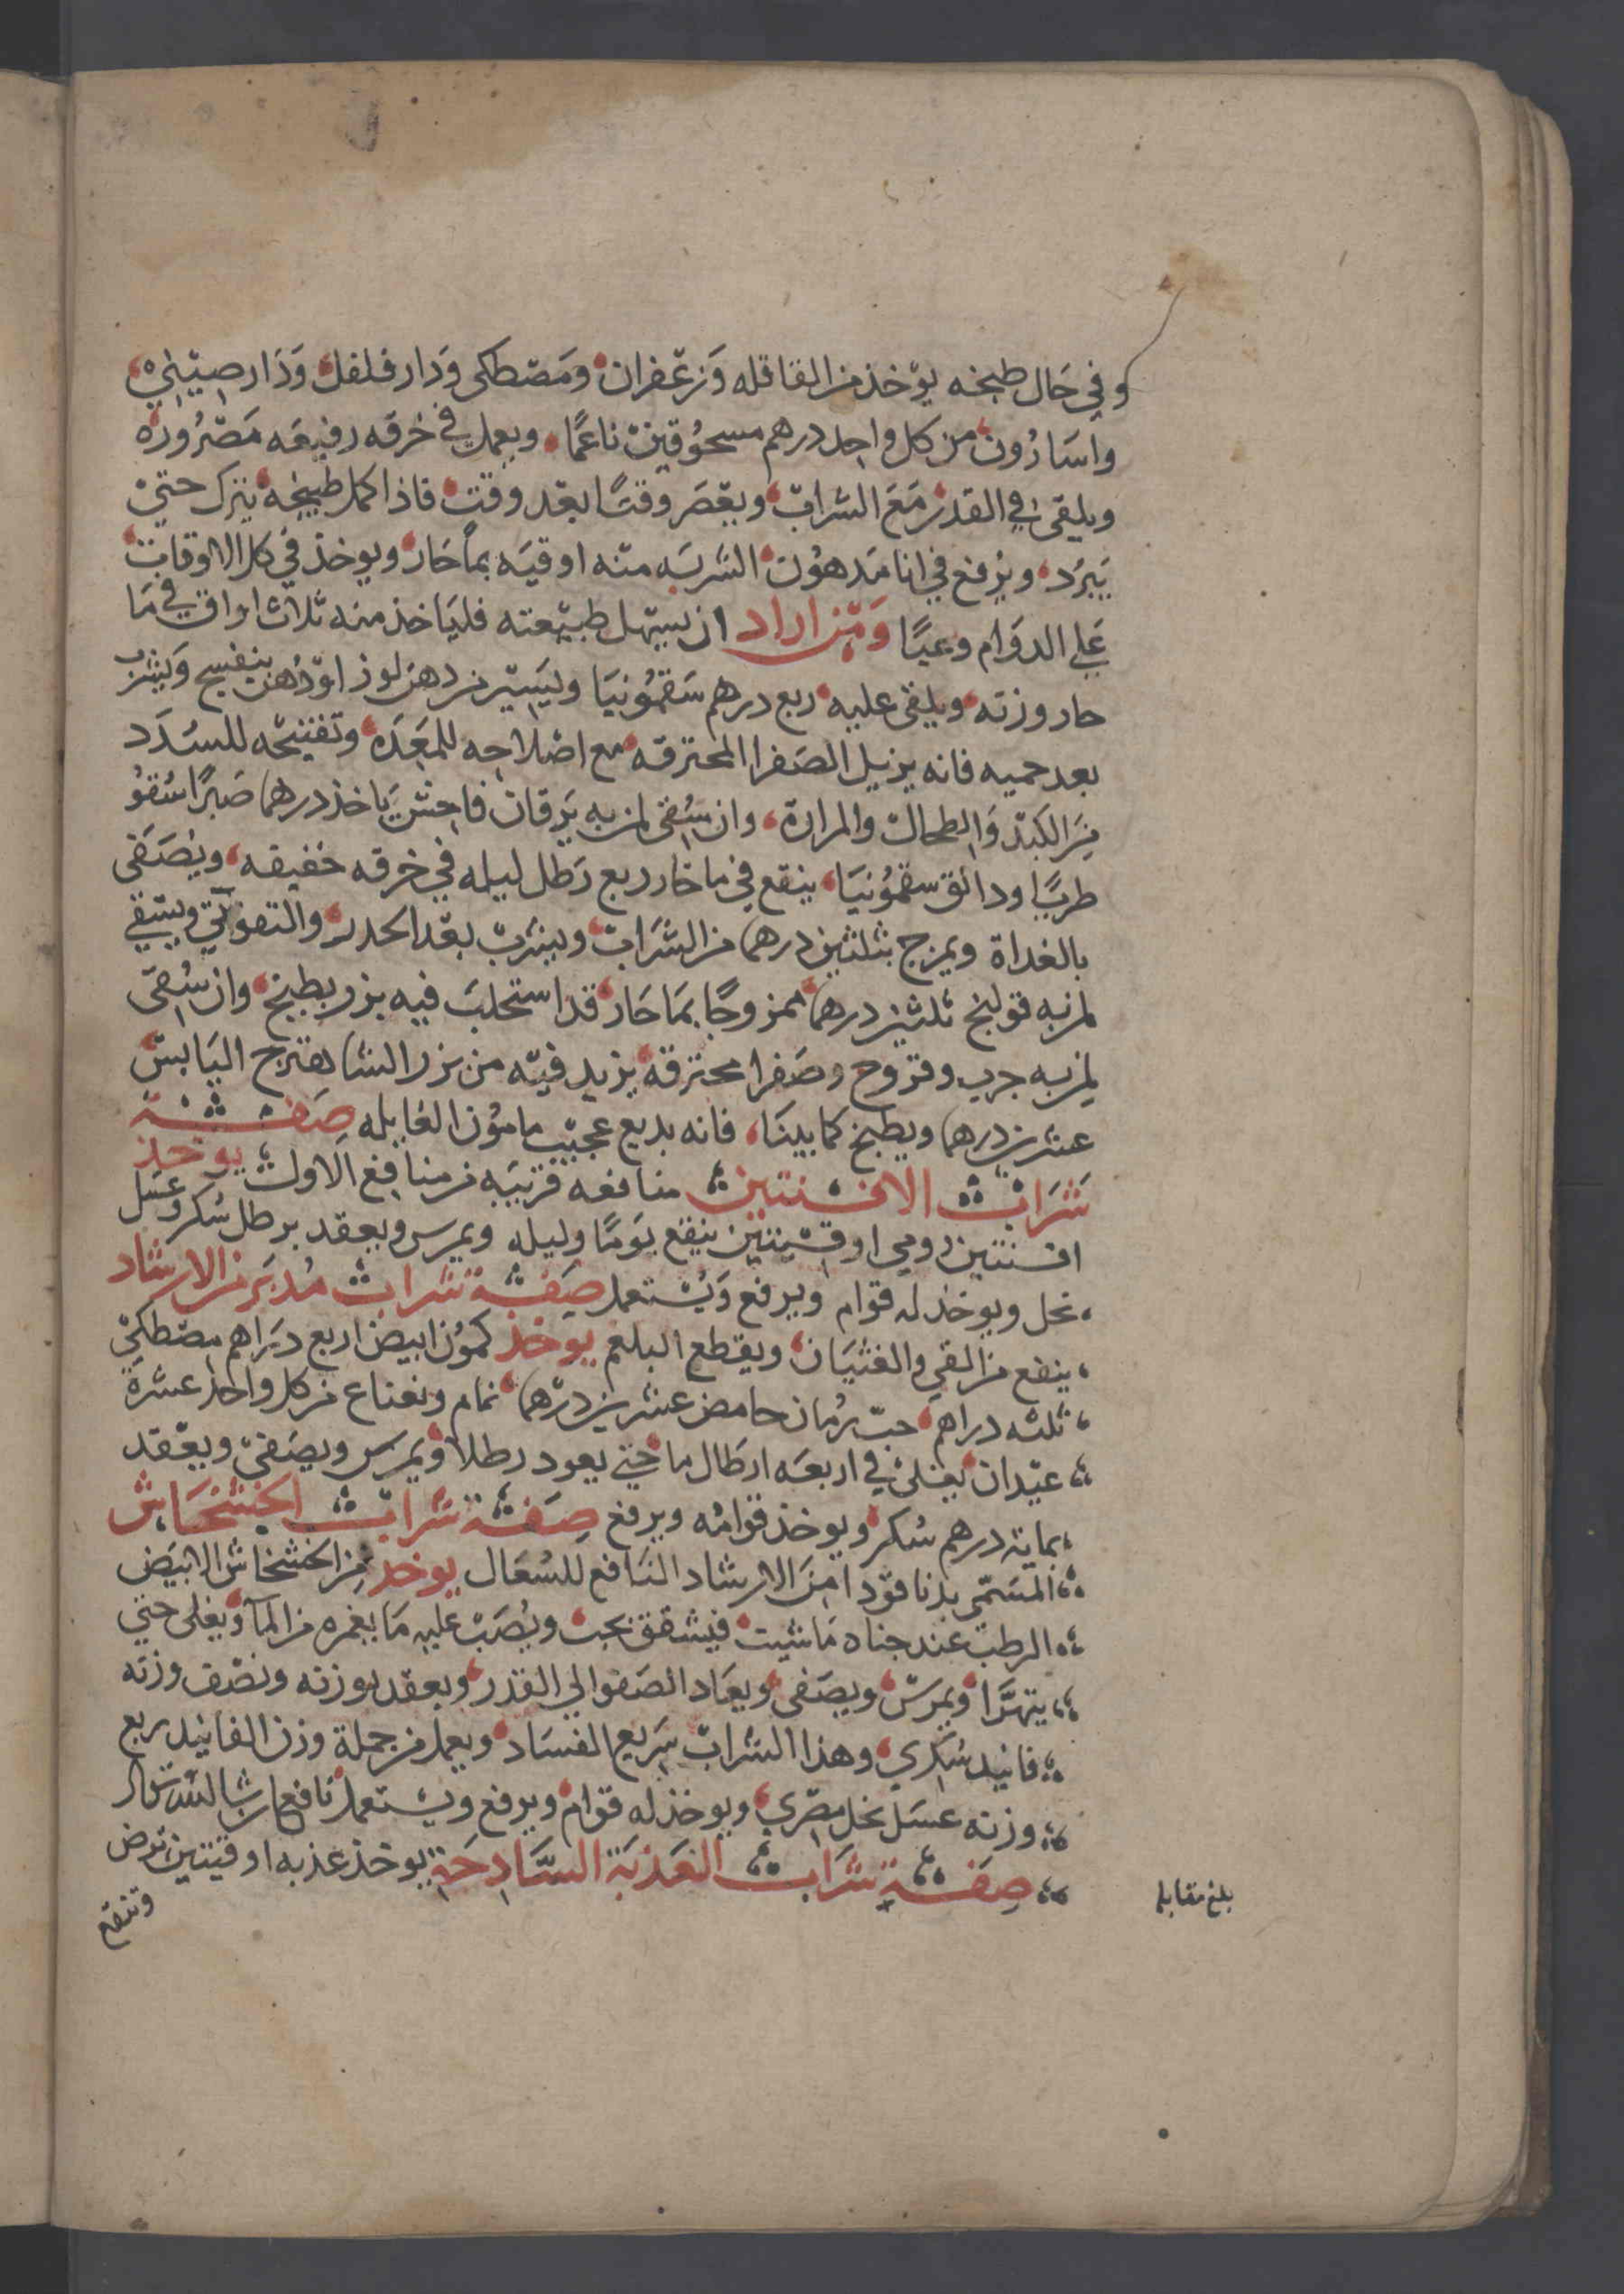 وفي حَال طبخه يوْخذ من القاقله وَزعْفران ومَصْطكى ودَار فلفل وَدَار صيْني
واسَارُون من كل واحد درهم مسحُوقين ناعمًا ويعمل في خرقه رفيعَه مَصْرُورَه
ويلقى في القدر مَعَ الشراب ويعْصَر وقتًا بعْد وقت فاذا كمل طبيخه يترك حتي
يَبرُد ويرْفع في انا مَدهوُن الشربَه منه اوقيَه بماً حَار ويوخذ في كل الاوقات
عَلي الدوَام وعبًا وَمن اراد ان يسْهل طبيْعته فليَاخذ منه ثلاث اواق في مَا
حار وزنه ويلقى عليه ربع درهم سَقمُونيَا ويَسيْر من دهن لوز اوْ دُهْن بنفسج وَيشرَب
بعد حميه فانه يزيل الصَفرا المحترقه مع اصْلاحه للمعَدَه وتفتيْحه للسُدَد
مِنَ الكبَد وَالطحال والمرارة وان سُقى لمن به يَرقان فاحش يَاخذ درهما صَبرًا سُقوُ
طريًا ودانق سقمُونيَا ينقع في ما حَار ربع رَطل ليله في خرقه خفيقه ويُصَفى
بالغداة ويمزج بثلثين درهما من الشَراب ويشرب بعْد الحدر والتفوتي ويسقي
لمن به قولنج ثلثين درهما ممزوجًا بمَا حَار قد استحلبَ فيه بزر بطيخ وان سُقىَ
لمن به جرب وقروح وصَفرا محترقة يزيد فيْه من بزر الشاهترج اليَابسْ
عشرين درهما ويطبخ كما بينَا فانه بديع عجيْب مامُون الغايله صِفة
شَرَاب الافسنتين منافعه قريَبه من منافع الاول يوخذ
افسنتين رومي اوقيتين ينقع يَومًا وليله ويمرس ويعقد برطل سُكر وعسَل
نحل ويوخذ له قوام ويرفع وَيُستعمل صِفة شراب مُدبَر من الارشاد
ينفع من القي والغثيَان ويقطع البلغم يوخذ كمُون ابيض اربع دَرَاهم مصْطكى
ثلثه دراهم حبّ رمان حامض عشرين درْهما نمام ونعناع من كل واحد عشرَة
عيْدان يغلى في اربعَه ارطال ما حتي يعود رطلا ويمرس ويصَفى ويعْقد
بماية درهم سُكر ويوخذ قوامُه ويرفع صِفة شرَاب الخشْخَاش
المسَمّى بدنا قوّدا مِنَ الارشاد النَافع للسُعَال يوخذ من الخشخاش الابيَض
الرطب عند جناه مَا شيت فيشقق نجب ويُصَب عليه مَا يغمره من المآ ويغلى حتي
يتهَرَّا ويمرسْ ويصَفى ويعَاد الصَفو الي القدر ويعقد بوزنه ونصْف وزنه
فانيد سُكري وهذا الشراب سَريع الفسَاد ويعمل من جملة وزن الفانيد ربع
وزنه عسَل نحل مصْري ويوخذ له قوام ويرفع ويستعمل نافع ان شا الله تعالى
صِفة شرَاب العَذبَة السَّادجَة يوخذ عذبه اوقيتين ترض
وتنقع
بلغ مقابله